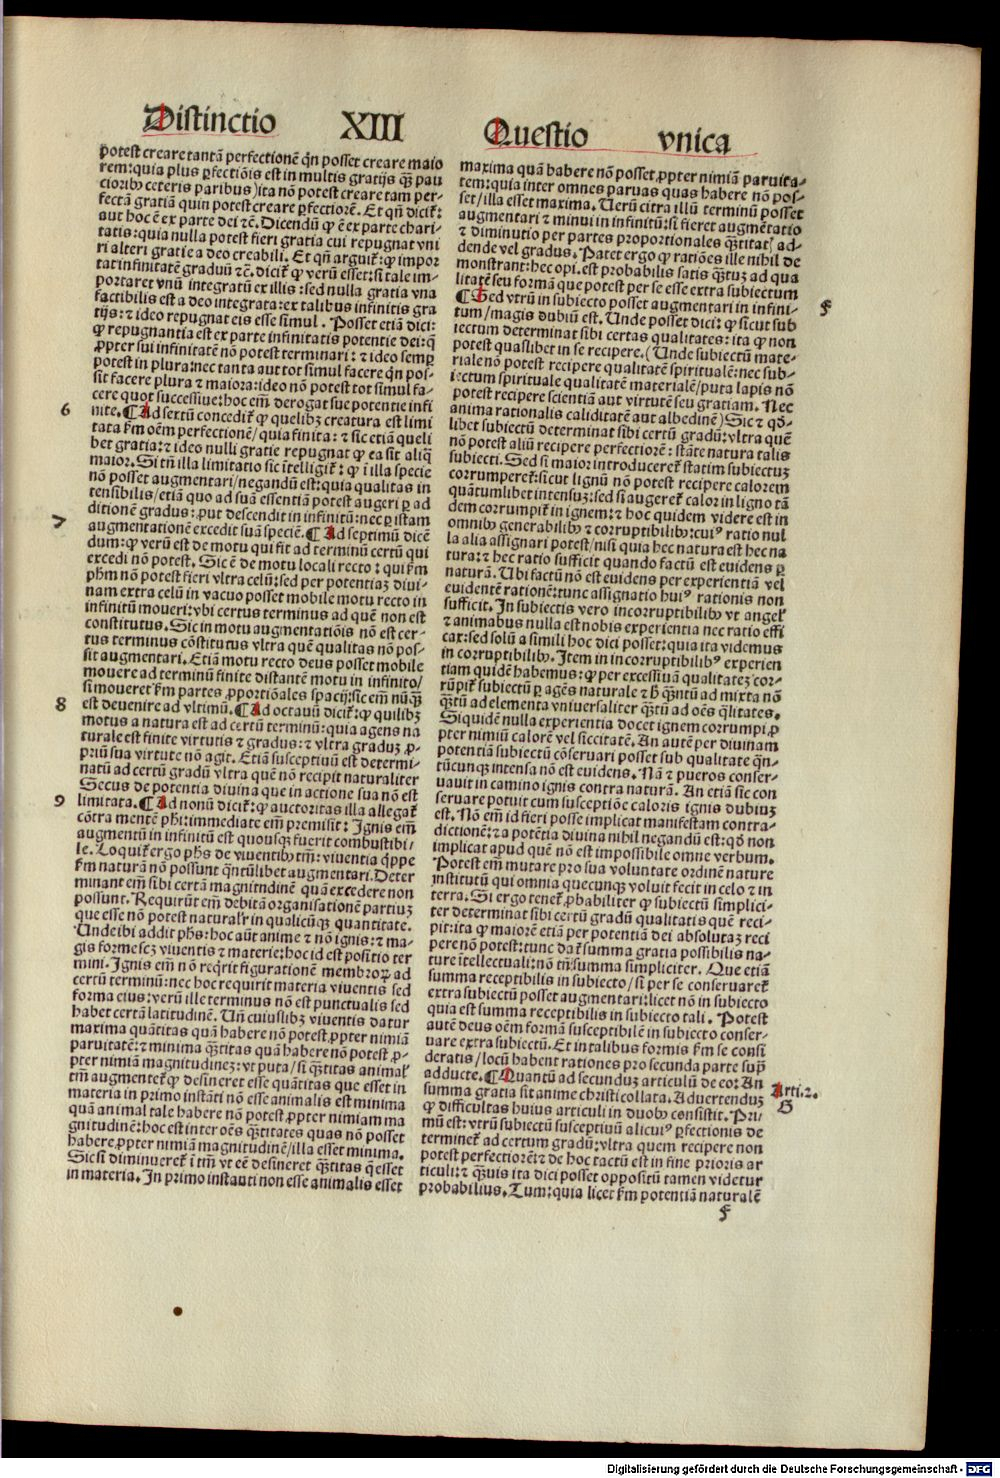 Distinctio XIII Questio vnica
potest creare tantā perfectionē qn̄ posset creare maio
rem: quia plus ꝑfectiōis est in multis gratijs qꝫ̄ pau
cioribꝰ ceteris paribus) ita nō potest creare tam per-
fectā gratiā quin potest creare ꝑfectiorē. Et qn̄ dicit̄:
aut hoc ē ex parte dei ⁊c̄. Dicendū ꝙ ē ex parte chari-
tatis: quia nulla potest fieri gratia cui repugnat vni
ri alteri gratie a deo creabili. Et qn̄ arguit̄: ꝙ impor
tat infinitatē graduū ⁊c̄. dicit̄ ꝙ verū esset: si tale im-
portaret vnū integratū ex illis: sed nulla gratia vna
factibilis est a deo integrata: ex talibus infinitis gra
tijs: ⁊ ideo repugnat eis esse simul. Posset etiā dici:
ꝙ repugnantia est ex parte infinitatis potentie dei: q̄
ꝓpter sui infinitatē nō potest terminari: ⁊ ideo semꝑ
potest in plura: nec tanta aut tot simul facere qn̄ pos-
sit facere plura ⁊ maiora: ideo nō potest tot simul fa-
cere quot successiue: hoc em̄ derogat sue potentie infi
6 nite. ¶ Ad sextū concedit̄ ꝙ quelibꝫ creatura est limi
tata ẜm oēm perfectionē/ quia finita: ⁊ sic etiā queli
bet gratia: ⁊ ideo nulli gratie repugnat ꝙ ea sit aliq̄
maior. Si tn̄ illa limitatio sic ītelligit̄: ꝙ ī illa specie
nō posset augmentari/ negandū est: quia qualitas in
tensibilis/ etiā quo ad suā essentiā potest augeri ꝑ ad
ditionē gradus: ꝓut descendit in infinitū: nec ꝑ istam
7 augmentationē excedit suā speciē. ¶ Ad septimū dicē
dum: ꝙ verū est de motu qui fit ad terminū certū qui
excedi nō potest. Sic ē de motu locali recto: qui ẜm
phm̄ nō potest fieri vltra celū: sed per potentiaꝫ diui-
nam extra celū in vacuo posset mobile motu recto in
infinitū moueri: vbi certus terminus ad quē non est
constitutus. Sic in motu augmentatiōis nō est cer-
tus terminus cōstitutus vltra quē qualitas nō pos-
sit augmentari. Etiā motu recto deus posset mobile
mouere ad terminū finite distantē motu in infinito/
si moueret̄ ẜm partes ꝓportiōales spacij: sic em̄ nūqꝫ̄
8 est deuenire ad vltimū. ¶ Ad octauū dicit̄: ꝙ quilibꝫ
motus a natura est ad certū terminū: quia agens na
turale est finite virtutis ⁊ gradus: ⁊ vltra graduꝫ ꝓ-
priū sua virtute nō agit. Etiā susceptiuū est determi-
natū ad certū gradū vltra quē nō recipit naturaliter
Secus de potentia diuina que in actione sua nō est
9 limitata. ¶ Ad nonū dicit̄: ꝙ auctoritas illa allegat̄
cōtra mentē phi: immediate em̄ premisit: Ignis em̄
augmentū in infinitū est quousqꝫ fuerit combustibi/
le. Loquit̄ ergo phs̄ de viuentibꝰ tm̄: viuentia q̄ppe
ẜm naturā nō possunt qn̄tūlibet augmentari. Deter
minant em̄ sibi certā magnitndinē quā excedere non
possunt. Requirūt em̄ debitā organisationē partiuꝫ
que esse nō potest naturalr̄ in qualicūqꝫ quantitate.
Unde ibi addit phs̄: hoc aūt anime ⁊ nō ignis: ⁊ ma-
gis forme scꝫ viuentis ⁊ materie: hoc id est positio ter
mini. Ignis em̄ nō req̄rit figurationē membroꝝ ad
certū terminū: nec hoc requirit materia viuentis sed
forma eius: verū ille terminus nō est punctualis sed
habet certā latitudinē. Un̄ cuiuslibꝫ viuentis datur
maxima quātitas quā habere nō potest ꝓpter nimiā
paruitatē: ⁊ minima qꝫ̄titas quā habere nō potest ꝓ-
pter nimiam magnitudineꝫ: vt puta/ si qꝫ̄titas animal̄
tm̄ augmentet̄ ꝙ desineret esse quātitas que esset in
materia in primo instāti nō esse animalis est minima
quā animal tale habere nō potest ꝓpter nimiam ma
gnitudinē: hoc est inter oēs qꝫ̄titates quas nō posset
habere ꝓpter nimiā magnitudinē/ illa esset minima.
Sic si diminueret̄ ī tm̄ vt eē desineret qꝫ̄titas q̄ esset
in materia. In primo instanti non esse animalis esset
maxima quā habere nō posset ꝓpter nimiā paruita-
tem: quia inter omnes paruas quas habere nō pos-
set/ illa esset maxima. Uerū citra illū terminū posset
augmentari ⁊ minui in infinitū: si fieret augmētatio
⁊ diminutio per partes proportionales qꝫ̄titatꝭ ad-
dende vel gradus. Patet ergo ꝙ ratiōes ille nihil de
monstrant: hec opi. est probabilis satis qꝫ̄tuꝫ ad qua
litatē seu formā que potest per se esse extra subiectum
¶ Sed vtrū in subiecto posset augmentari in infini- F
tum/ magis dubiū est. Unde posset dici: ꝙ sicut sub
iectum determinat sibi certas qualitates: ita ꝙ non
potest quaslibet in se recipere. (Unde subiectū mate-
riale nō potest recipere qualitatē spiritualē: nec sub-
iectum spirituale qualitatē materialē/ puta lapis nō
potest recipere scientiā aut virtutē seu gratiam. Nec
anima rationalis caliditatē aut albedinē) Sic ⁊ qd̄-
libet subiectū determinat sibi certū gradū: vltra quē
nō potest aliū recipere perfectiorē: stāte natura talis
subiecti. Sed si maior introduceret̄ statim subiectuꝫ
corrumperet̄: sicut lignū nō potest recipere calorem
quātumlibet intensuꝫ: sed si augeret̄ calor in ligno tā
dem corrumpit̄ in ignem: ⁊ hoc quidem videre est in
omnibꝰ generabilibꝰ ⁊ corruptibilibꝰ: cuiꝰ ratio nul
la alia assignari potest/ nisi quia hec natura est hec na
tura: ⁊ hec ratio sufficit quando factū est euidens ꝑ
naturā. Ubi factū nō est euidens per experientiā vel
euidentē rationē: tunc assignatio huiꝰ rationis non
sufficit. In subiectis vero incorruptibilibꝰ vt angel̄
⁊ animabus nulla est nobis experientia nec ratio effi
cax: sed solū a simili hoc dici posset: quia ita videmus
in corruptibilibꝰ. Item in incorruptibilibꝰ experien
tiam quidē habemus: ꝙ per excessiuā qualitateꝫ cor-
rūpit̄ subiectū ꝑ agēs naturale ⁊ h̄ qꝫ̄ntū ad mixta nō
qꝫ̄tū ad elementa vniuersaliter qꝫ̄tū ad oēs q̄litates.
Siquidē nulla experientia docet ignem corrumpi ꝓ
pter nimiū calorē vel siccitatē. An autē per diuinam
potentiā subiectū cōseruari posset sub qualitate qn̄-
tūcunqꝫ intensa nō est euidens. Nā ⁊ pueros conser-
uauit in camino ignis contra naturā. An etiā sic con
seruare potuit cum susceptiōe caloris ignis dubiuꝫ
est. Nō em̄ id fieri posse implicat manifestam contra-
dictionē: ⁊ a potētia diuina nihil negandū est: qd̄ non
implicat apud quē nō est impossibile omne verbum.
Potest em̄ mutare pro sua voluntate ordinē nature
institutū qui omnia quecunqꝫ voluit fecit in celo ⁊ in
terra. Si ergo tenet̄ ꝓbabiliter ꝙ subiectū simplici-
ter determinat sibi certū gradū qualitatis quē reci-
pit: ita ꝙ maiorē etiā per potentiā dei absolutaꝫ reci
pere nō potest: tunc dat̄ summa gratia possibilis na-
ture ītellectuali: nō tn̄ summa simpliciter. Que etiā
summa receptibilis in subiecto/ si per se conseruaret̄
extra subiectū posset augmentari: licet nō in subiecto
quia est summa receptibilis in subiecto tali. Potest
autē deus oēm formā susceptibilē in subiecto conser-
uare extra subiectū. Et in talibus formis ẜm se consi
deratis/ locū habent rationes pro secunda parte supͣ
adducte. ¶ Quantū ad secunduꝫ articulū de eo: An Arti. 2.
summa gratia sit anime christi collata. Aduertenduꝫ G
ꝙ difficultas huius articuli in duobꝰ consistit. Pri/
mū est: vtrū subiectū susceptiuū alicuiꝰ ꝑfectionis de
terminet̄ ad certum gradū: vltra quem recipere non
potest perfectiorē: ⁊ de hoc tactū est in fine prioris ar
ticuli: ⁊ qꝫ̄uis ita dici posset oppositū tamen videtur
probabilius. Tum: quia licet ẜm potentiā naturalē
f
Digitalisierung gefördert durch die Deutsche Forschungsgemeinschaft - DFG